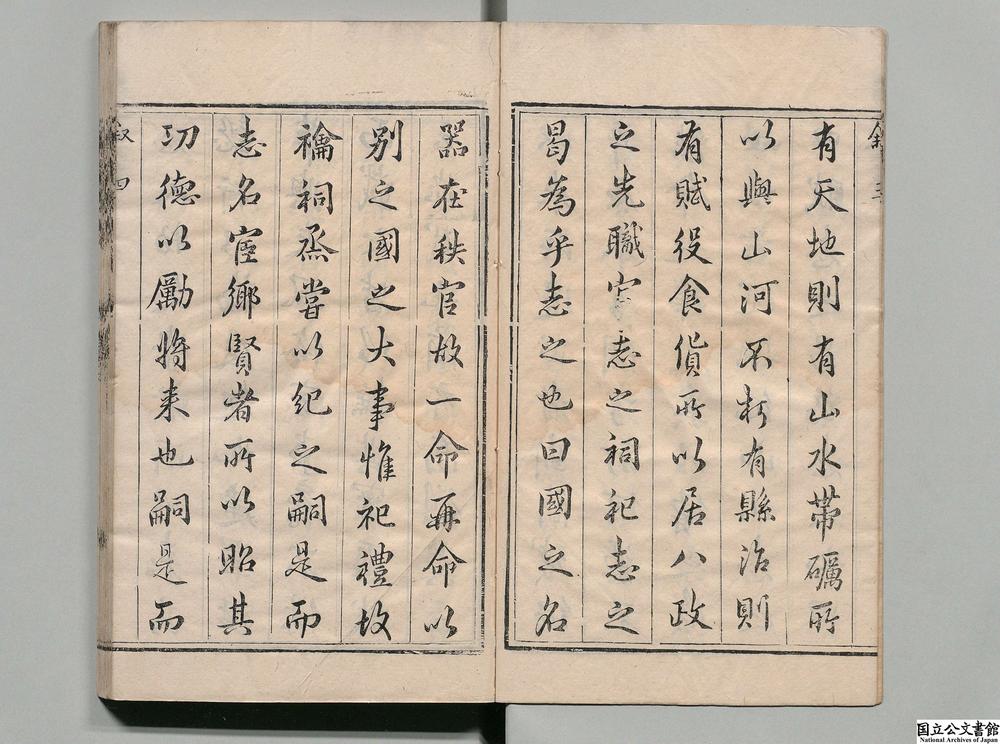 叙 三
有天地則有山水帶礪所
以與山河不朽有縣治則
有賦役食貨所以居八政
之先職官志之祠祀志之
曷為乎志之也曰國之名
器在秩官故一命再命以
別之國之大事惟祀禮故
禴祠烝嘗以紀之嗣是而
志名宦鄉賢者所以昭其
功德以勵將来也嗣是而
叙 四
国立公文書館
National Archives of Japan